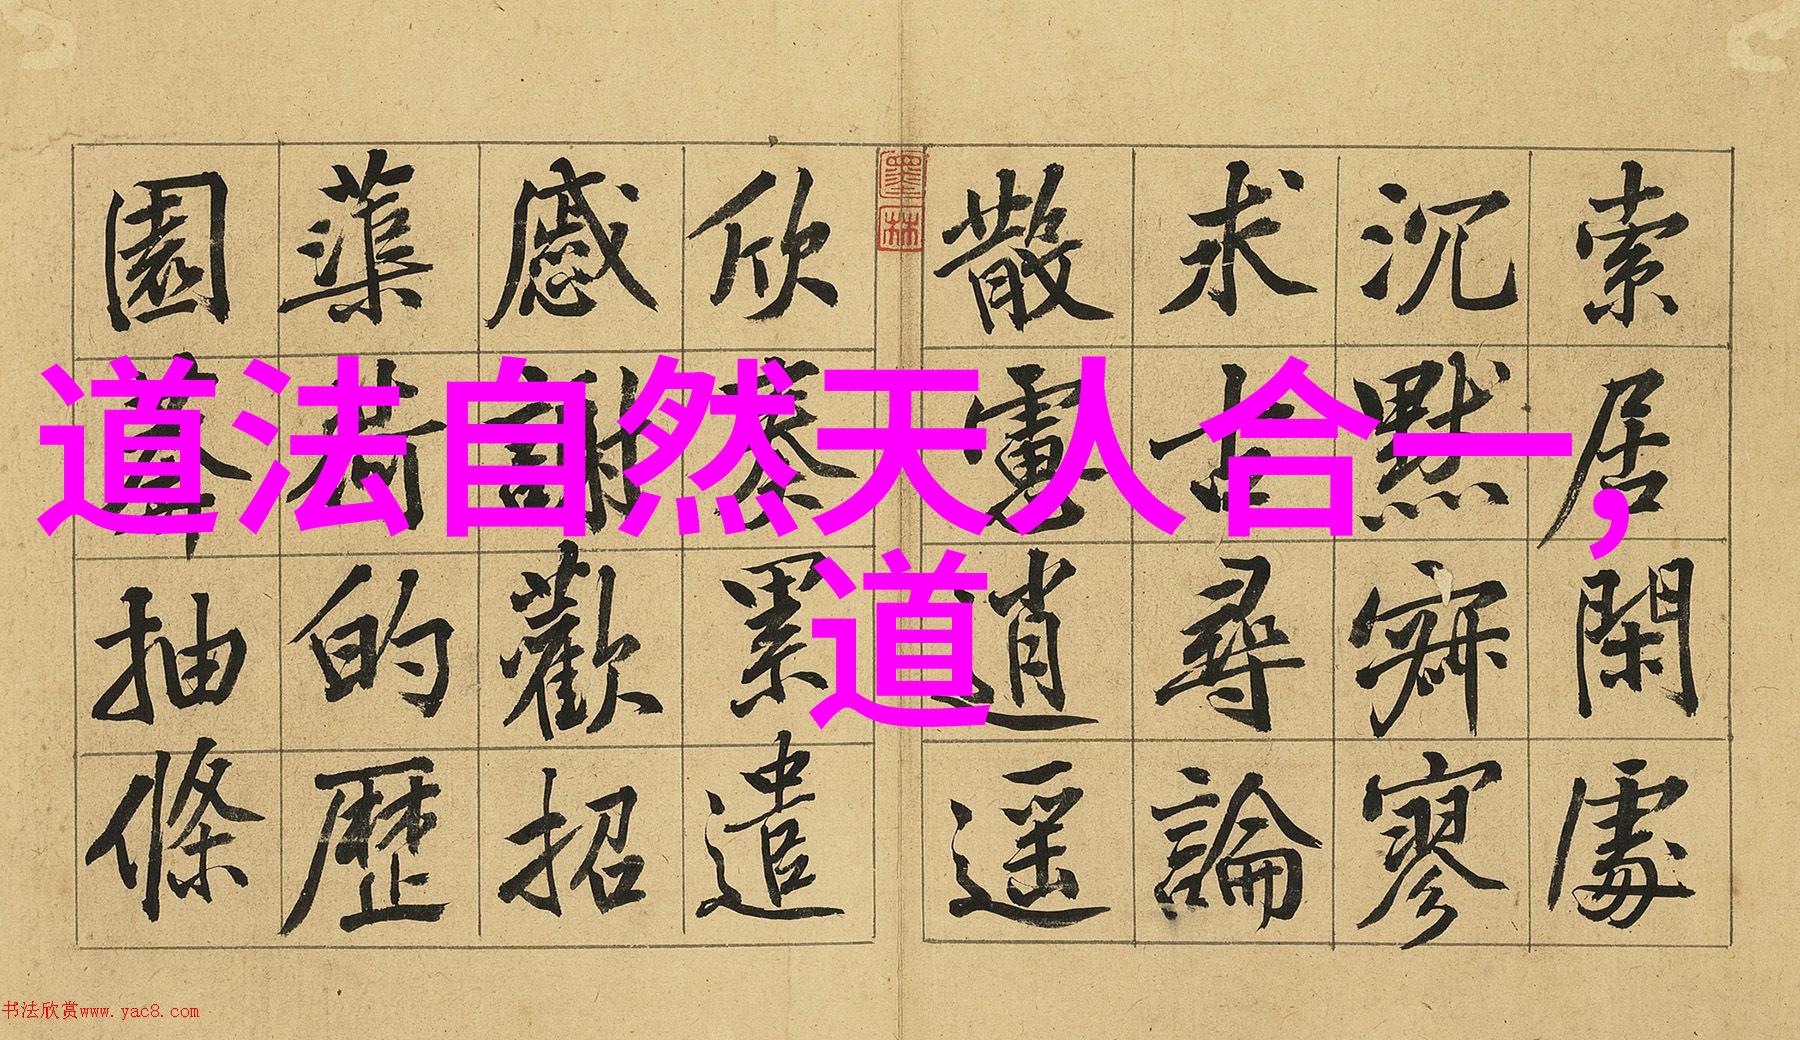 道法自然天人合一，
道
索居閑處
沉默寂寥
求古尋論
散慮逍遥
欣奏累遣
慼謝歡招
蕖荷的歷
園莽抽條
墨林
书法欣赏www.yac8.com